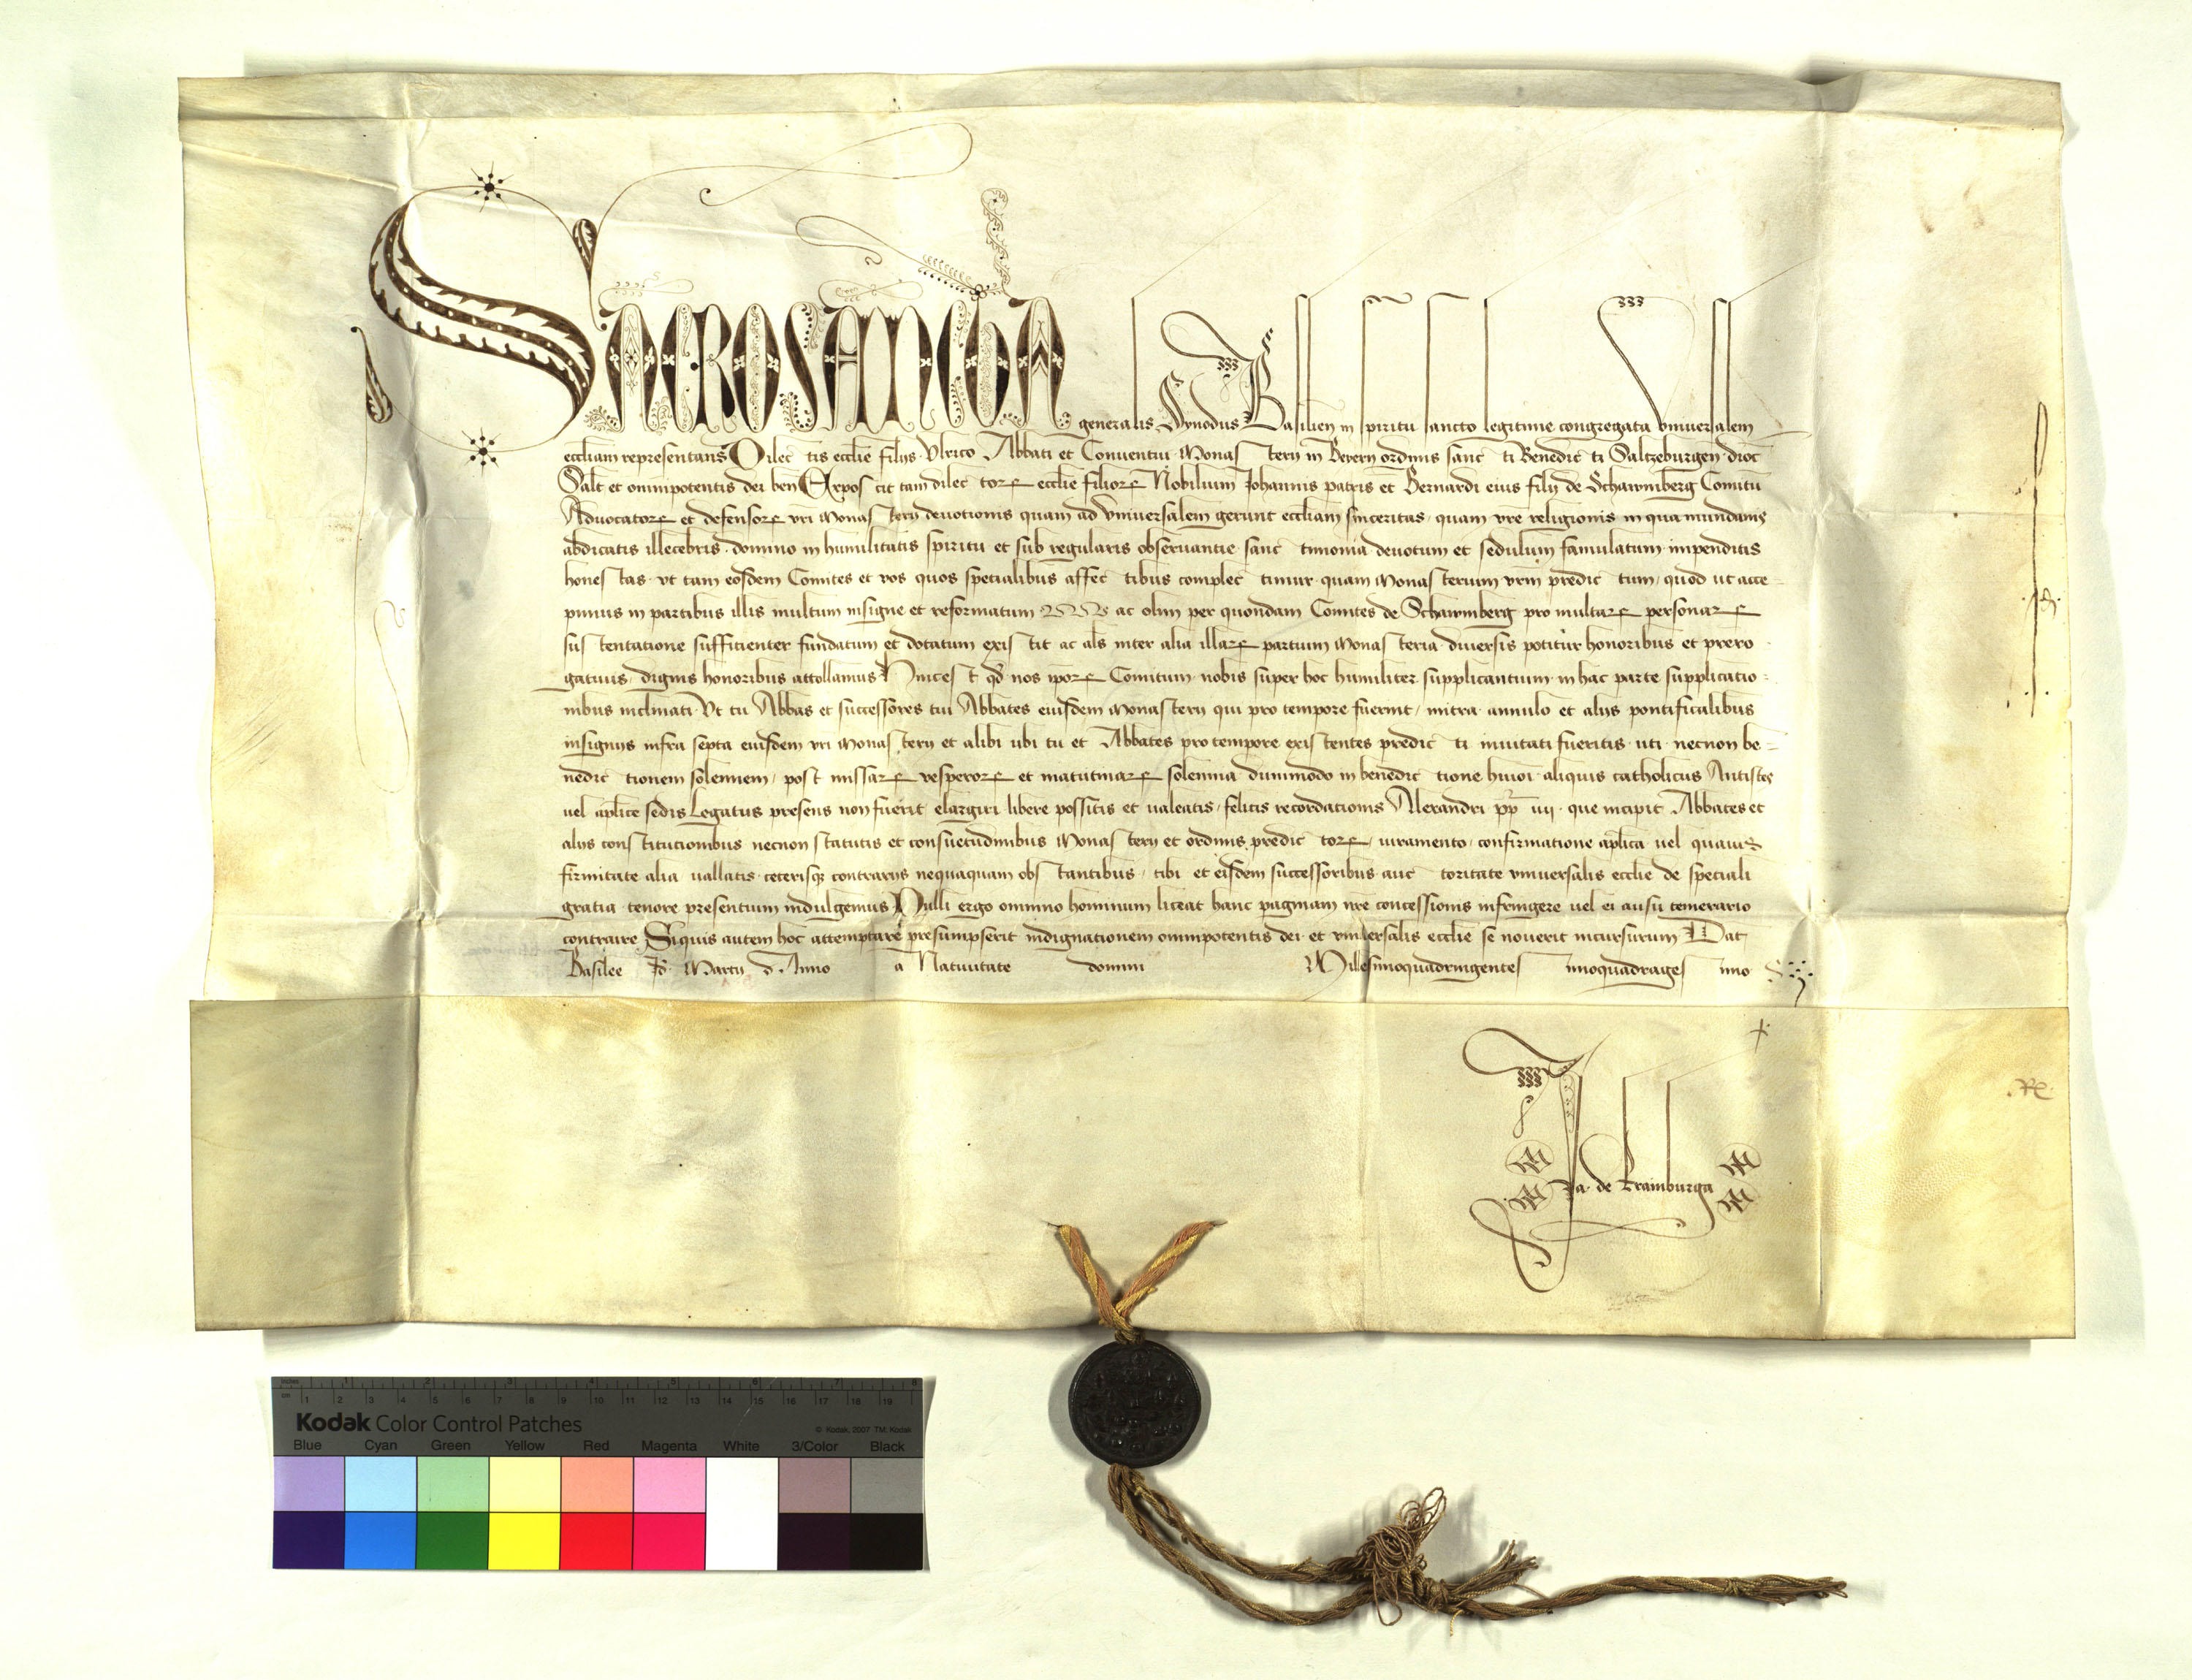 SACROSANCTA generalis Synodus Basilien in spiritu sancto legitime congregata vniuersalem
eccliam representans Dilectis ecclie filijs Vlrico Abbati et Conuentui Monasterij in Beyern ordinis sancti Benedicti Saltzeburgen dioc
Salt et omnipotentis dei ben Exposcit tam dilector ecclie filior Nobilium Johannis patris et Bernardi eius filij de Schawmberg Comitu
Aduocator et defensor vri Monasterij deuotionis quam ad vniuersalem gerunt eccliam sinceritas quam vre religionis in qua mundanis
abdicatis illecebris domino in humilitatis spiritu et sub regularis obseruantie sanctimonia deuotum et sedulum famulatum impenditis
honestas vt tam eosdem Comites et vos quos specialibus affectibus complectimur quam Monasterium vrm predictum quod ut acce-
pimus in partibus illis multum insigne et reformatum ac olim per quondam Comites de Schawmberg pro multar personar
sustentatione sufficienter fundatum et dotatum existit ac als inter alia illar partium Monasteria diuersis potitur honoribus et prero
gatiuis dignis honoribus attollamus Hinc est qd nos ipor Comitum nobis super hoc humiliter supplicantium in hac parte supplicatio-
nibus inclinati Vt tu Abbas et successores tui Abbates eiusdem Monasterij qui pro tempore fuerint mitra annulo et alijs pontificalibus
insignijs infra septa eiusdem vri Monasterij et alibi ubi tu et Abbates pro tempore existentes predicti inuitati fueritis uti necnon be-
nedictionem solennem post missar vesperor et matutinar solennia dummodo in benedictione huioi aliquis catholicus Antistes
uel aplice sedis Legatus presens non fuerit elargiri libere possitis et ualeatis felicis recordationis Alexandri pp iiij que incipit Abbates et
alijs constitucionibus necnon statutis et consuetudinibus Monasterij et ordinis predictor iuramento confirmatione aplica uel quauis
firmitate alia uallatis ceterisq contrarijs nequaquam obstantibus tibi et eisdem successoribus auctoritate vniuersalis ecclie de speciali
gratia tenore presentium indulgemus Nulli ergo omnino hominum liceat hanc paginam nre concessionis infringere uel ei ausu temerario
contraire Siquis autem hoc attemptare presumpserit indignationem omnipotentis dei et vniuersalis ecclie se nouerit incursurum Dat
Basilee Id Marcij Anno a Natiuitate domini Millesimoquadringentesimoquadragesimo
Re
Ja de Crainburga
Kodak Color Control Patches
© Kodak, 2007 TM: Kodak
Inches 1 2 3 4 5 6 7 8
cm 1 2 3 4 5 6 7 8 9 10 11 12 13 14 15 16 17 18 19
Blue Cyan Green Yellow Red Magenta White 3/Color Black